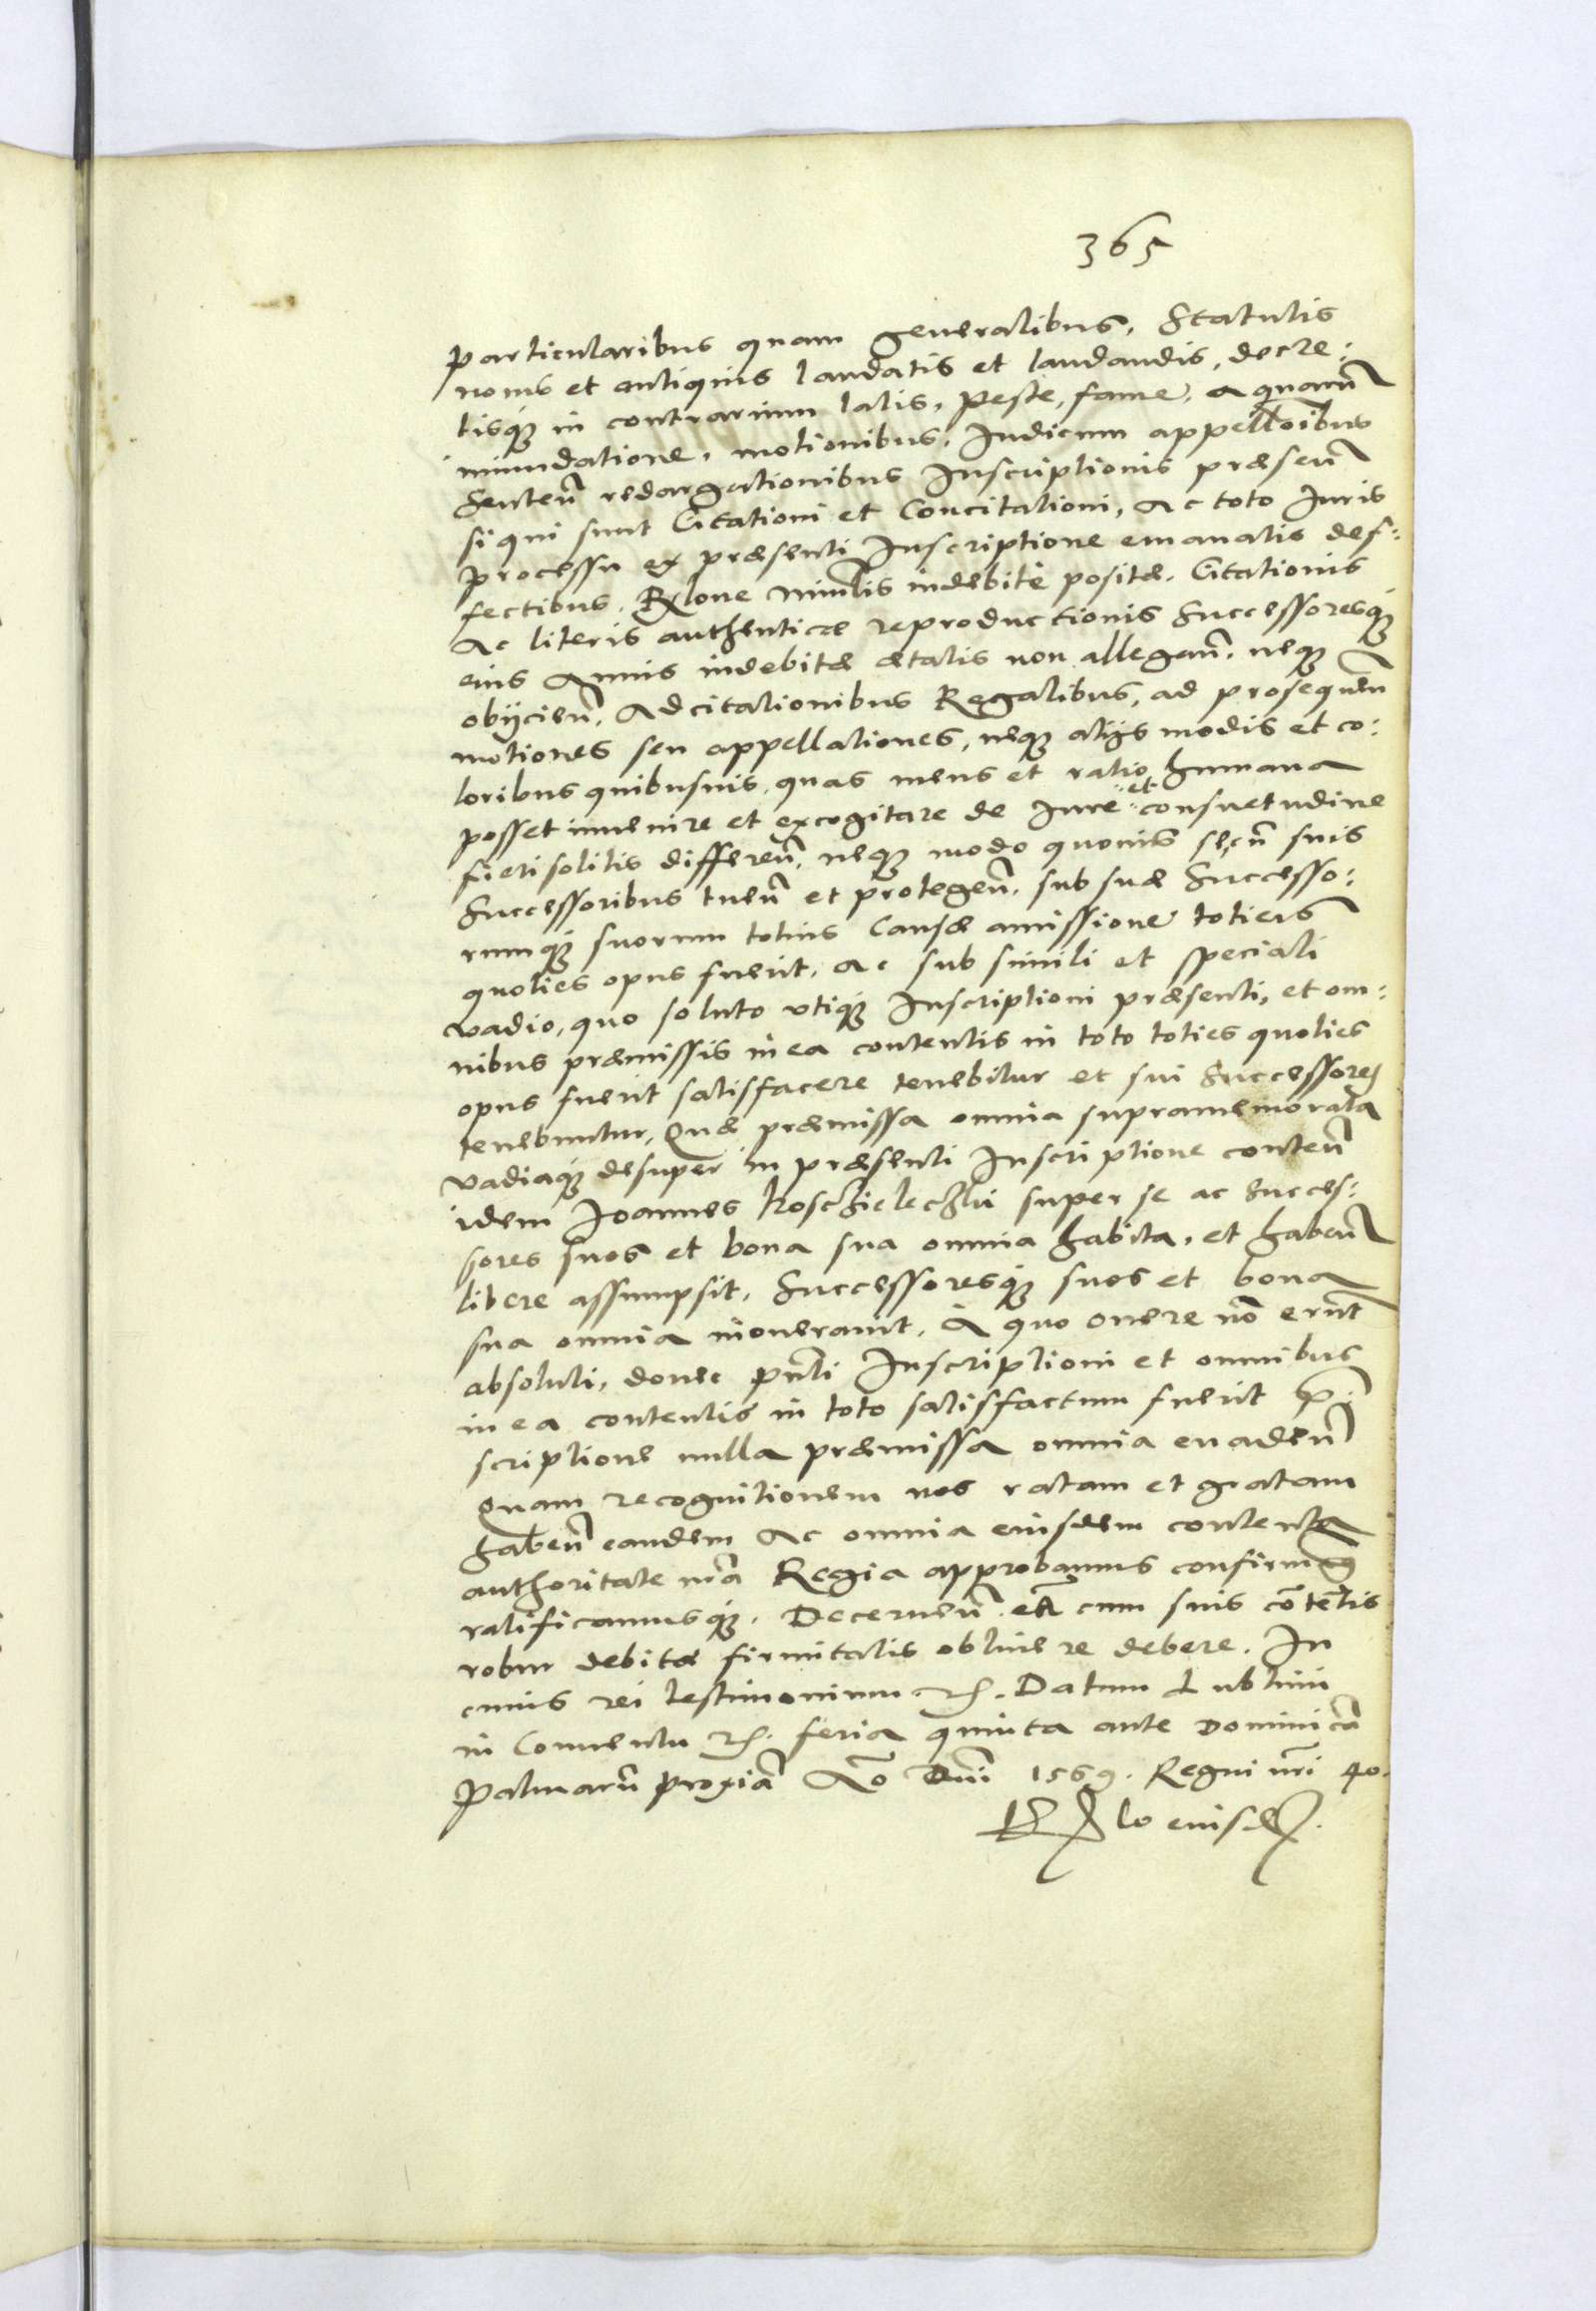 365
particularibus quam generalibus, Statutis
nouis et antiquis laudatis et laudandis, decre:
tisq₃ in contrarium latis, peste, fame, aquarū
inundatione, motionibus, Iudicum appelłoibus
senteñ redargutionibus Inscriptionis præseñ
si qui sunt Citationi et Concitationi, Ac toto Iuris
processu ex præsenti Inscriptione emanatis def:
fectibus, Rӕone indebitè positæ. Citationis
Ac literis authenticæ reproductionis Successoresq₃
eius Annis indebitæ ætatis non allegañ. neq₃
obijcieñ, Adcitationibus Regalibus, ad prosequeñ
motiones seu appellationes, neq₃ alijs modis et co:
loribus quibusuis, quas mens et ratio humana
posset inuenire et excogitare de Iure et consuetudine
fieri solitis differeñ, neq₃ modo quouis secū suis
Successoribus tueñ et protegeñ. sub suæ Successo:
rumq₃ suorum totius Causæ amissione totiens
quoties opus fuerit, Ac sub simili et speciali
vadio, quo soluto vtiq₃ Inscriptioni præsenti, et om:
nibus præmissis in ea contentis in toto toties quoties
opus fuerit satisfacere tenebitur et sui Successores
tenebuntur, Quæ præmissa omnia supramemorata
vadiaq₃ desuper in præsenti Inscriptione conteñ
idem Ioannes Koschieleczki super se ac Succes:
sores suos et bona sua omnia habita, et habeñ
libere assumpsit, Successoresq₃ suos et bona
sua omnia inonerauit, A quo onere nō erūt
absoluti, donec pñti Inscriptioni et omnibus
in ea contentis in toto satisfactum fuerit
scriptione nulla præmissa omnia euadeñ
Quam recognitionem nos ratam et gratam
habeñ eandem Ac omnia eiusdem contenta
authoritate nrā Regia approbamus confirmꝰ
ratificamusq₃. Decerneñ eā cum suis cōtētis
robur debitæ firmitatis obtinere debere. In
cuius rei testimonium etc. Datum Lublini
in Conuentu etc. feria quinta ante Dominicā
Palmarū proxiā Ao Dni 1569. Regni nri 40.
Rlo eiusdē.